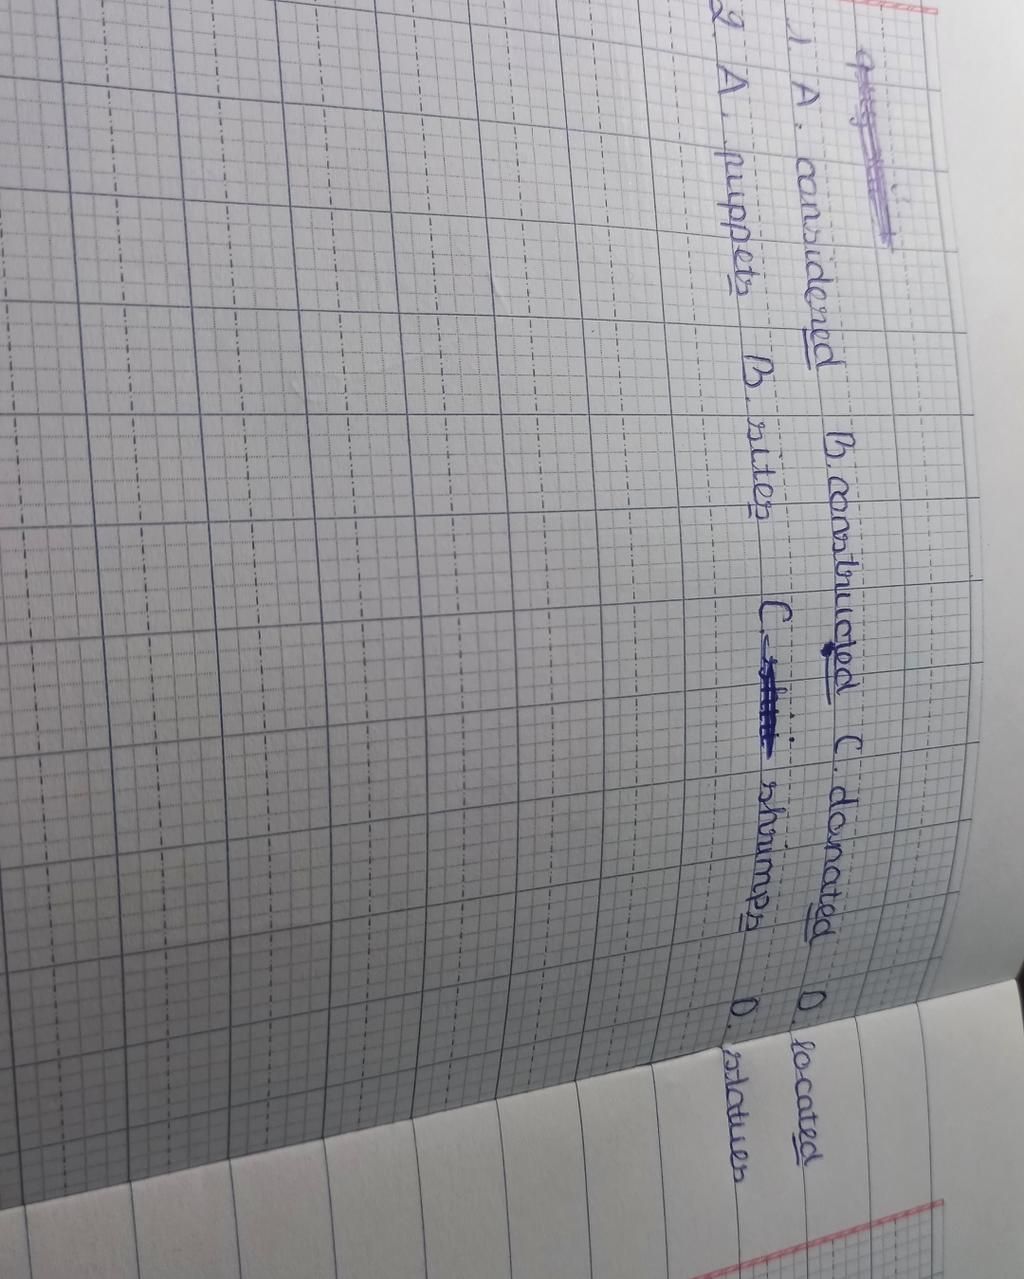 1. A. considered B. constructed C. donated D. located
2. A. puppets B. sites C. shrimps D. statues